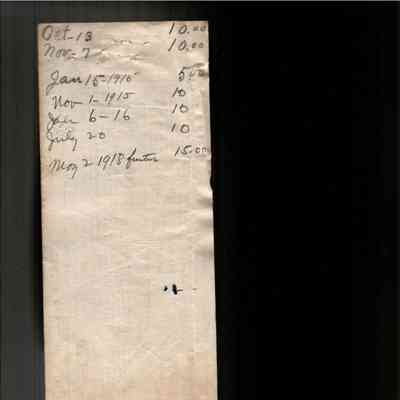 Oct-13 10.00
Nov-7 10.00
Jan 15-1915
Nov 1-1915 10
Jan 6-16 10
July 20 10
May 2 1918 15.00